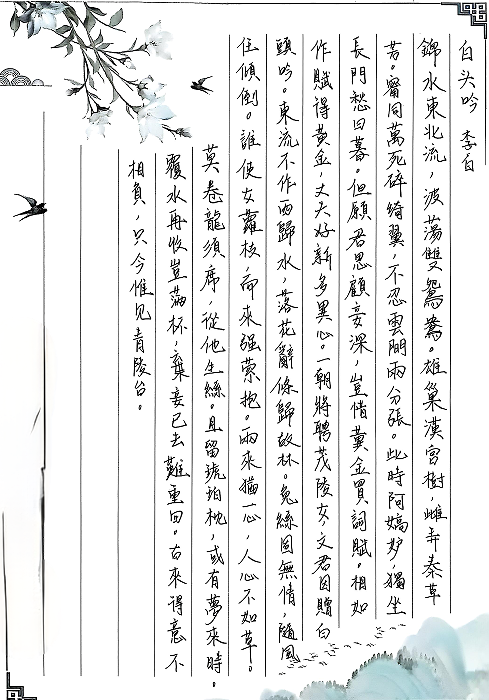 白头吟 李白
錦水東北流，波蕩雙鴛鴦。雄巢漢宮樹，雌弄秦草
芳。甯同萬死碎綺翼，不忍雲間兩分張。此時阿嬌妒，獨坐
長門愁日暮。但願君思顧妾深，豈惜黃金買詞賦。相如
作賦得黃金，丈夫好新多異心。一朝將聘茂陵女，文君因贈白
頭吟。東流不作西歸水，落花辭條歸故林。兔絲固無情，隨風
任傾倒。誰使女蘿枝，而來强萦抱。兩來猶一心，人心不如草。
莫卷龍須席，從他生絲。且留琥珀枕，或有夢來時。
覆水再收豈滿杯，棄妾已去難重回。古來得意不
相負，只今惟见青陵台。